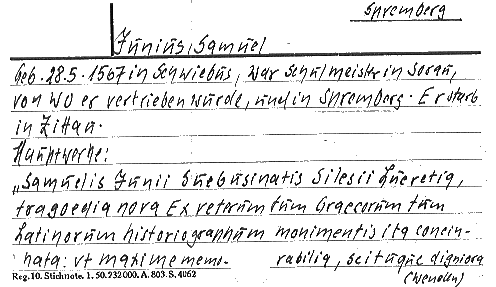 Spremberg
Junius, Samuel
Geb. 28.5.1567 in Schwiebus, war Schulmeister in Sorau,
von wo er vertrieben wurde, und in Spremberg. Er starb
in Zittau.
Hauptwerke:
„Samuelis Junii Suebusinatis Silesii Lucretia,
tragoedia nova Ex veterum tum Graecorum tum
Latinorum historiographum monimentis ita concin-
nata: vt maxime memo-rabilia, scituque digniora
(Wenden)
Reg. 10. Stichnote. 1. 50. 232 000. A. 803. S. 4062